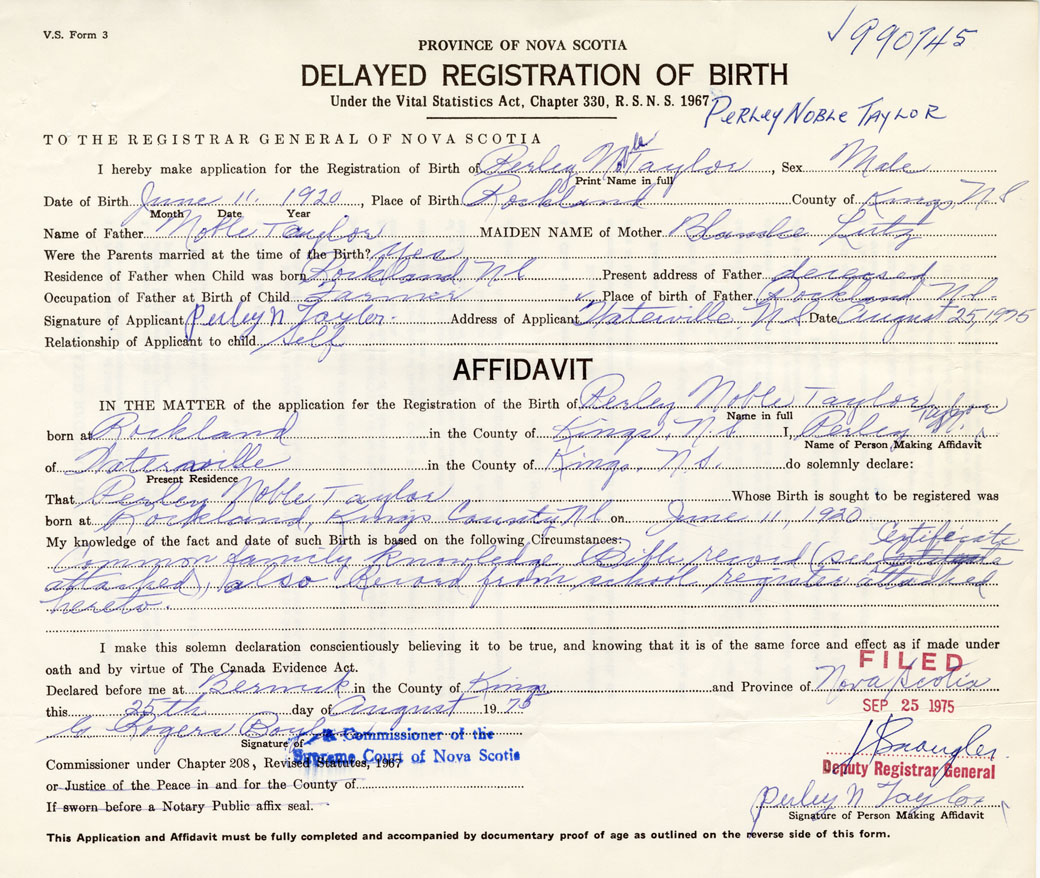 V.S. Form 3
1990745
PROVINCE OF NOVA SCOTIA
DELAYED REGISTRATION OF BIRTH
Under the Vital Statistics Act, Chapter 330, R.S.N.S. 1967
PERLEY NOBLE TAYLOR
TO THE REGISTRAR GENERAL OF NOVA SCOTIA
I hereby make application for the Registration of Birth of Perley Noble Taylor, Sex Male
Print Name in full
Date of Birth June 11, 1920, Place of Birth Rockland County of Kings, N.S
Month Date Year
Name of Father Noble Taylor MAIDEN NAME of Mother Blanche Lutz
Were the Parents married at the time of the Birth? Yes
Residence of Father when Child was born Rockland NS Present address of Father deceased
Occupation of Father at Birth of Child Farmer Place of birth of Father Rockland N.S.
Signature of Applicant Perley N Taylor Address of Applicant Waterville, N.S Date August 25, 1975
Relationship of Applicant to child Self
AFFIDAVIT
IN THE MATTER of the application for the Registration of the Birth of Perley Noble Taylor
Name in full
born at Rockland in the County of Kings, N.S I, Perley N. Taylor
Name of Person Making Affidavit
of Waterville in the County of Kings, N.S. do solemnly declare:
Present Residence
That Perley Noble Taylor Whose Birth is sought to be registered was
born at Rockland, Kings County NS on June 11, 1920
My knowledge of the fact and date of such Birth is based on the following Circumstances:
Common family knowledge Bible record (see Certificate
attached), also Record from school register attached
hereto.
I make this solemn declaration conscientiously believing it to be true, and knowing that it is of the same force and effect as if made under
oath and by virtue of The Canada Evidence Act.
FILED
Declared before me at Berwick in the County of Kings and Province of Nova Scotia
this 25th day of August 1975
SEP 25 1975
G Rogers
Signature of
A Commissioner of the
Supreme Court of Nova Scotia
Commissioner under Chapter 208, Revised Statutes, 1967
Deputy Registrar General
or Justice of the Peace in and for the County of
Perley N Taylor
If sworn before a Notary Public affix seal.
Signature of Person Making Affidavit
This Application and Affidavit must be fully completed and accompanied by documentary proof of age as outlined on the reverse side of this form.